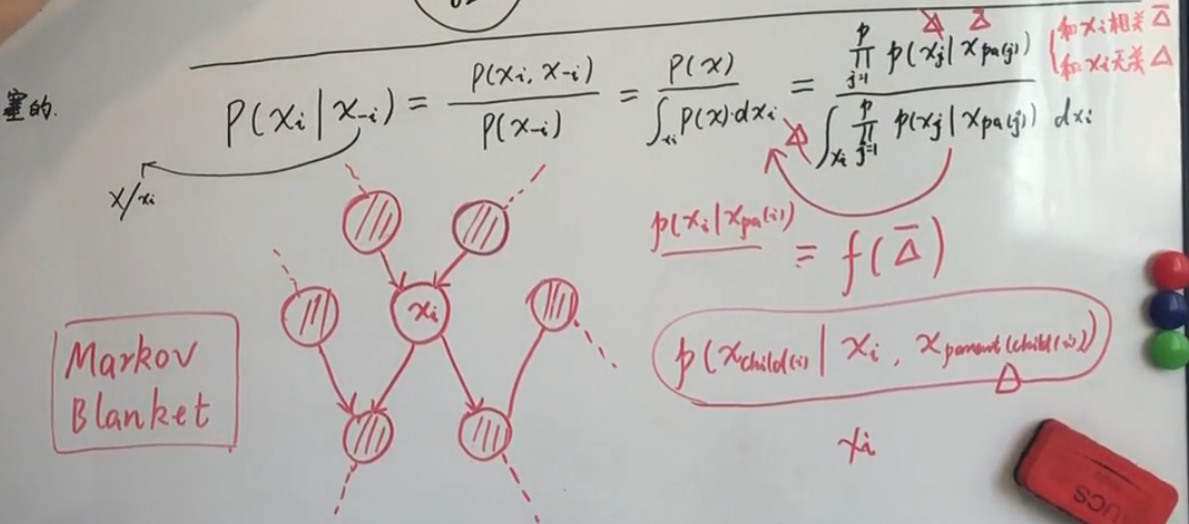 塞的.
P(xᵢ|x₋ᵢ) = P(xᵢ, x₋ᵢ) / P(x₋ᵢ) = P(x) / ∫ₓᵢ P(x)·dxᵢ = ∏ⱼ₌₁ᵖ p(xⱼ|x_pa(j)) / ∫ₓᵢ ∏ⱼ₌₁ᵖ p(xⱼ|x_pa(j)) dxᵢ
Δ̄ Δ
和xᵢ相关 Δ̄
和xᵢ无关 Δ
Δ
x/xᵢ
p(xᵢ|x_pa(i)) = f(Δ̄)
xᵢ
Markov
Blanket
p(x_child(i) | xᵢ, x_parent(child(i)))
Δ
xᵢ